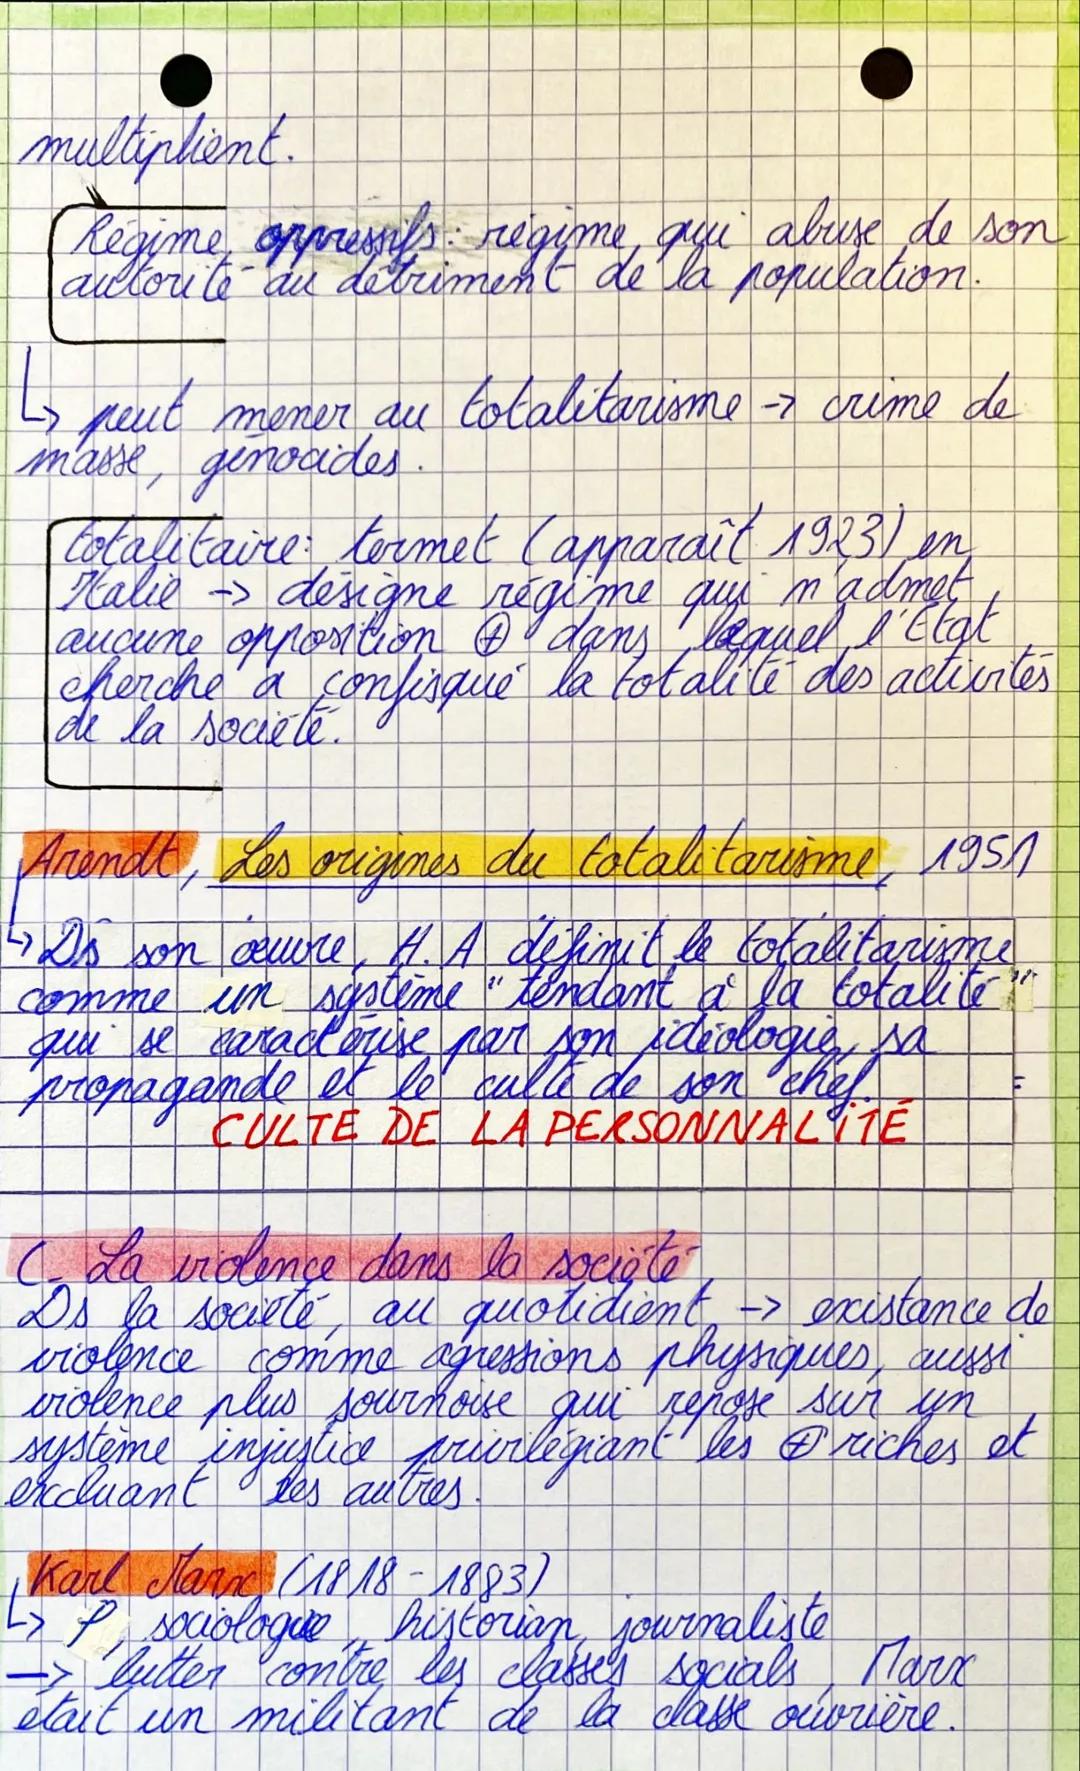 multiplient.
Régime oppressifs : régime qui abuse de son
autorité au détriment de la population.
↳ peut mener au totalitarisme → crime de
masse, génocides.
totalitaire : termet (apparaît 1923) en
Italie → désigne régime qui n'admet
aucune opposition ⊕ dans lequel l'Etat
cherche à confisqué la totalité des activités
de la société.
Arendt, Les origines du totalitarisme, 1951
↳ Ds son œuvre, H. A définit le totalitarisme
comme un système "tendant à la totalité"
qui se caractérise par son idéologie, sa
propagande et le culte de son chef. =
CULTE DE LA PERSONNALITÉ
C- La violence dans la société
Ds la société, au quotidient → existance de
violence comme agressions physiques, aussi
violence plus sournoise qui repose sur un
système injustice privilégiant les ⊕ riches et
excluant les autres.
Karl Marx (1818-1883)
↳ P, sociologue, historian, journaliste
→ lutter contre les classes socials, Marx
était un militant de la classe ouvrière.